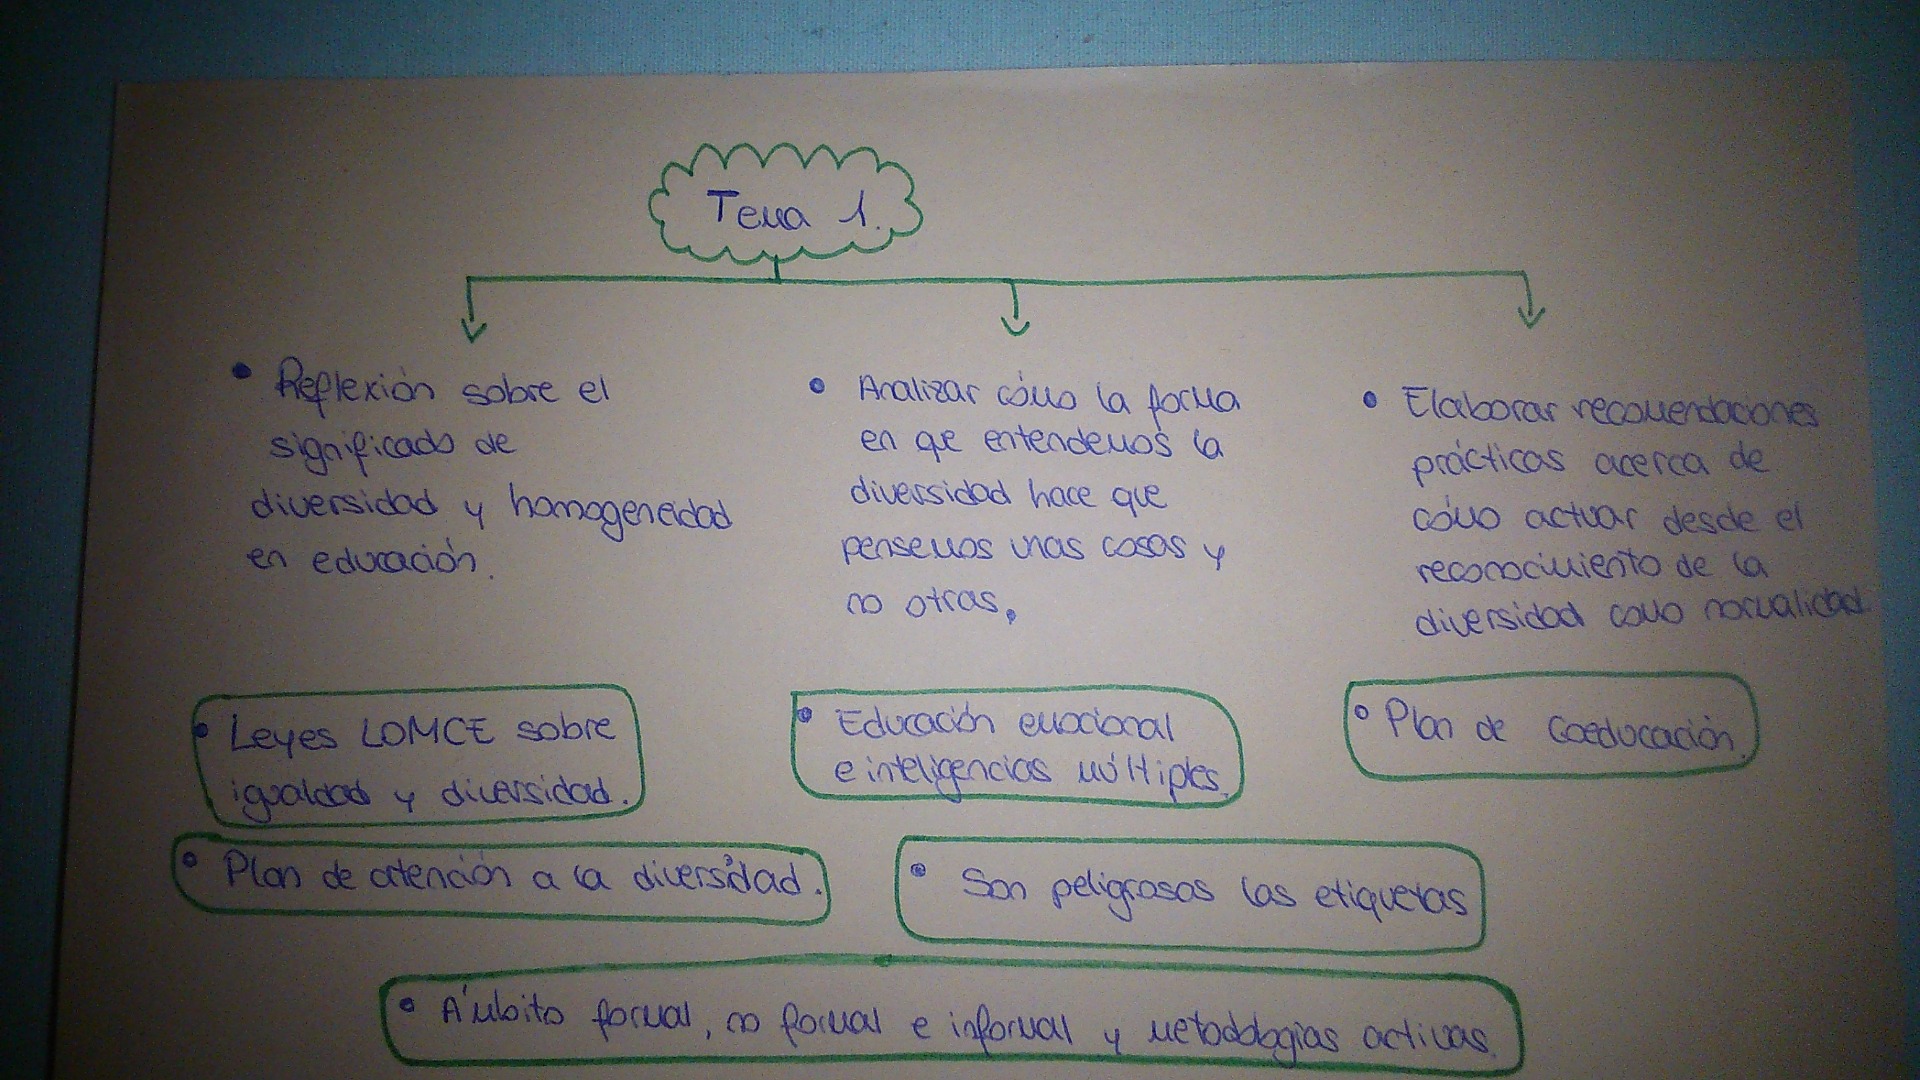 Tema 1.
• Reflexión sobre el
significado de
diversidad y homogeneidad
en educación.
• Analizar cómo la forma
en que entendemos la
diversidad hace que
pensemos unas cosas y
no otras.
• Elaborar recomendaciones
prácticas acerca de
cómo actuar desde el
reconocimiento de la
diversidad como normalidad.
• Leyes LOMCE sobre
igualdad y diversidad.
• Educación emocional
e inteligencias múltiples.
• Plan de Coeducación.
• Plan de atención a la diversidad.
• Son peligrosas las etiquetas
• Ámbito formal, no formal e informal y metodologías activas.